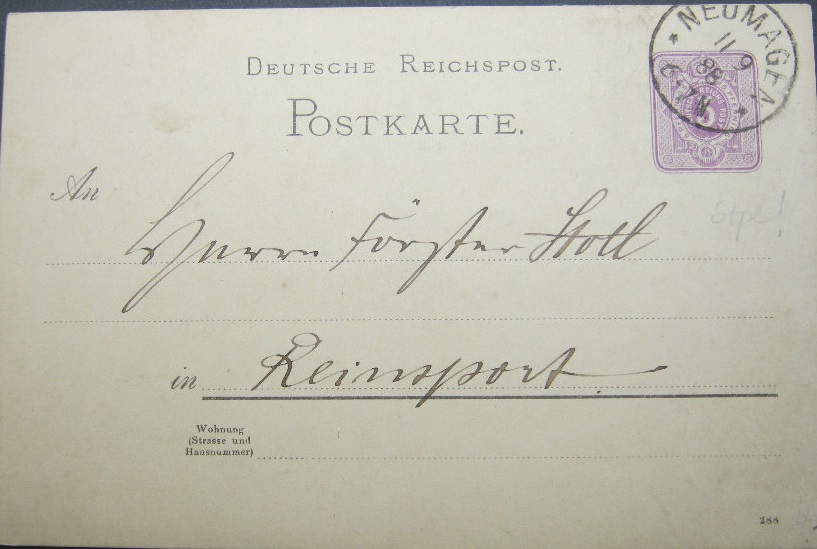 DEUTSCHE REICHSPOST.
POSTKARTE.
* NEUMAGEN *
11 9
88
6-7N
5
An
Herrn Förster Stoll
in Reinsport
Wohnung
(Strasse und
Hausnummer)
288